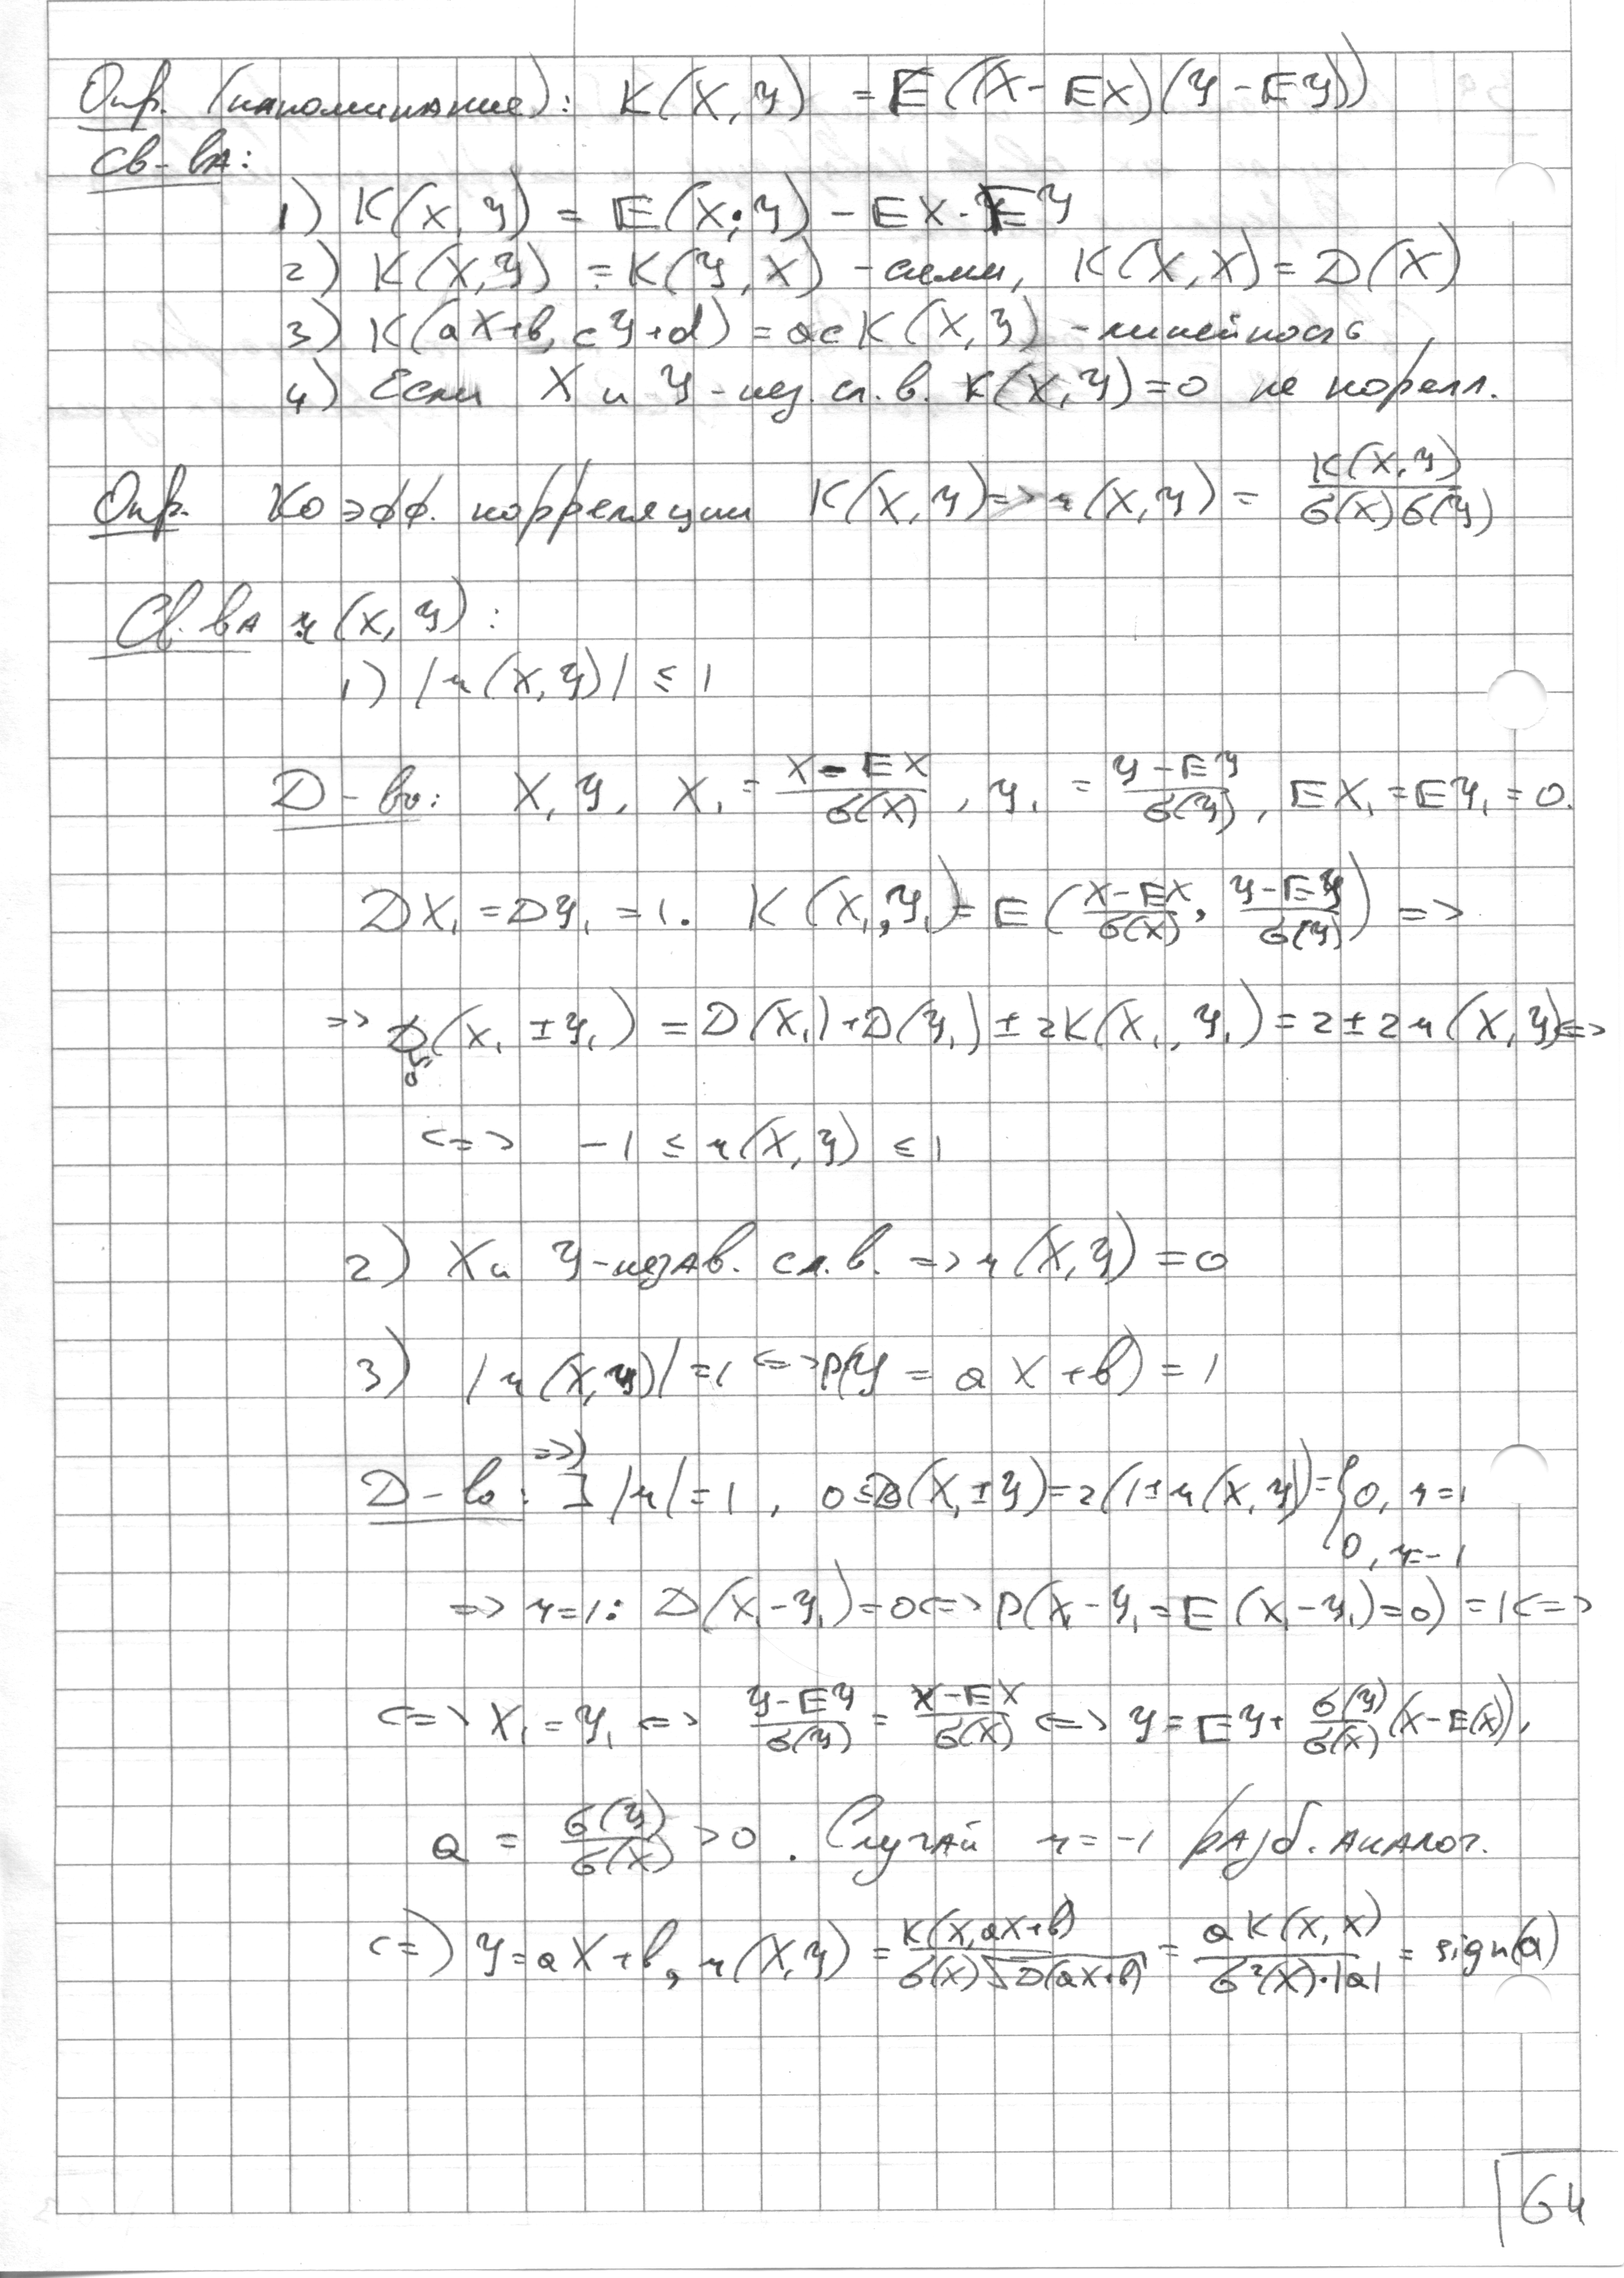 Опр. (напоминание): K(X, Y) = E((X - EX)(Y - EY))
Св-ва:
1) K(X, Y) = E(X·Y) - EX·EY
2) K(X, Y) = K(Y, X) - симм, K(X, X) = D(X)
3) K(aX+b, cY+d) = ac K(X, Y) - линейность
4) Если X и Y - нез. сл. в. K(X, Y) = 0 не корелл.
Опр. Коэфф. корреляции K(X, Y) => r(X, Y) = K(X, Y) / σ(X)σ(Y)
Св. ва r(X, Y):
1) |r(X, Y)| ≤ 1
Д-во: X, Y, X₁ = (X - EX) / σ(X), Y₁ = (Y - EY) / σ(Y), EX₁ = EY₁ = 0.
DX₁ = DY₁ = 1. K(X₁, Y₁) = E((X - EX) / σ(X), (Y - EY) / σ(Y)) =>
=> D(X₁ ± Y₁) = D(X₁) + D(Y₁) ± 2K(X₁, Y₁) = 2 ± 2r(X, Y) <=>
≥ 0
<=> -1 ≤ r(X, Y) ≤ 1
2) X и Y - незав. сл. в. => r(X, Y) = 0
3) |r(X, Y)| = 1 <=> P(Y = aX + b) = 1
Д-во: =>) ∃ |r| = 1, 0 ≤ D(X₁ ± Y) = 2(1 ± r(X, Y)) = { 0, r = 1
0, r = -1
=> r = 1: D(X₁ - Y₁) = 0 <=> P(X₁ - Y₁ = E(X₁ - Y₁) = 0) = 1 <=>
<=> X₁ = Y₁ <=> (Y - EY) / σ(Y) = (X - EX) / σ(X) <=> Y = EY + σ(Y) / σ(X) (X - E(X)),
a = σ(Y) / σ(X) > 0. Случай r = -1 разб. аналог.
<=) Y = aX + b, r(X, Y) = K(X, aX+b) / σ(X)√D(aX+b) = a K(X, X) / σ²(X)·|a| = sign(a)
64